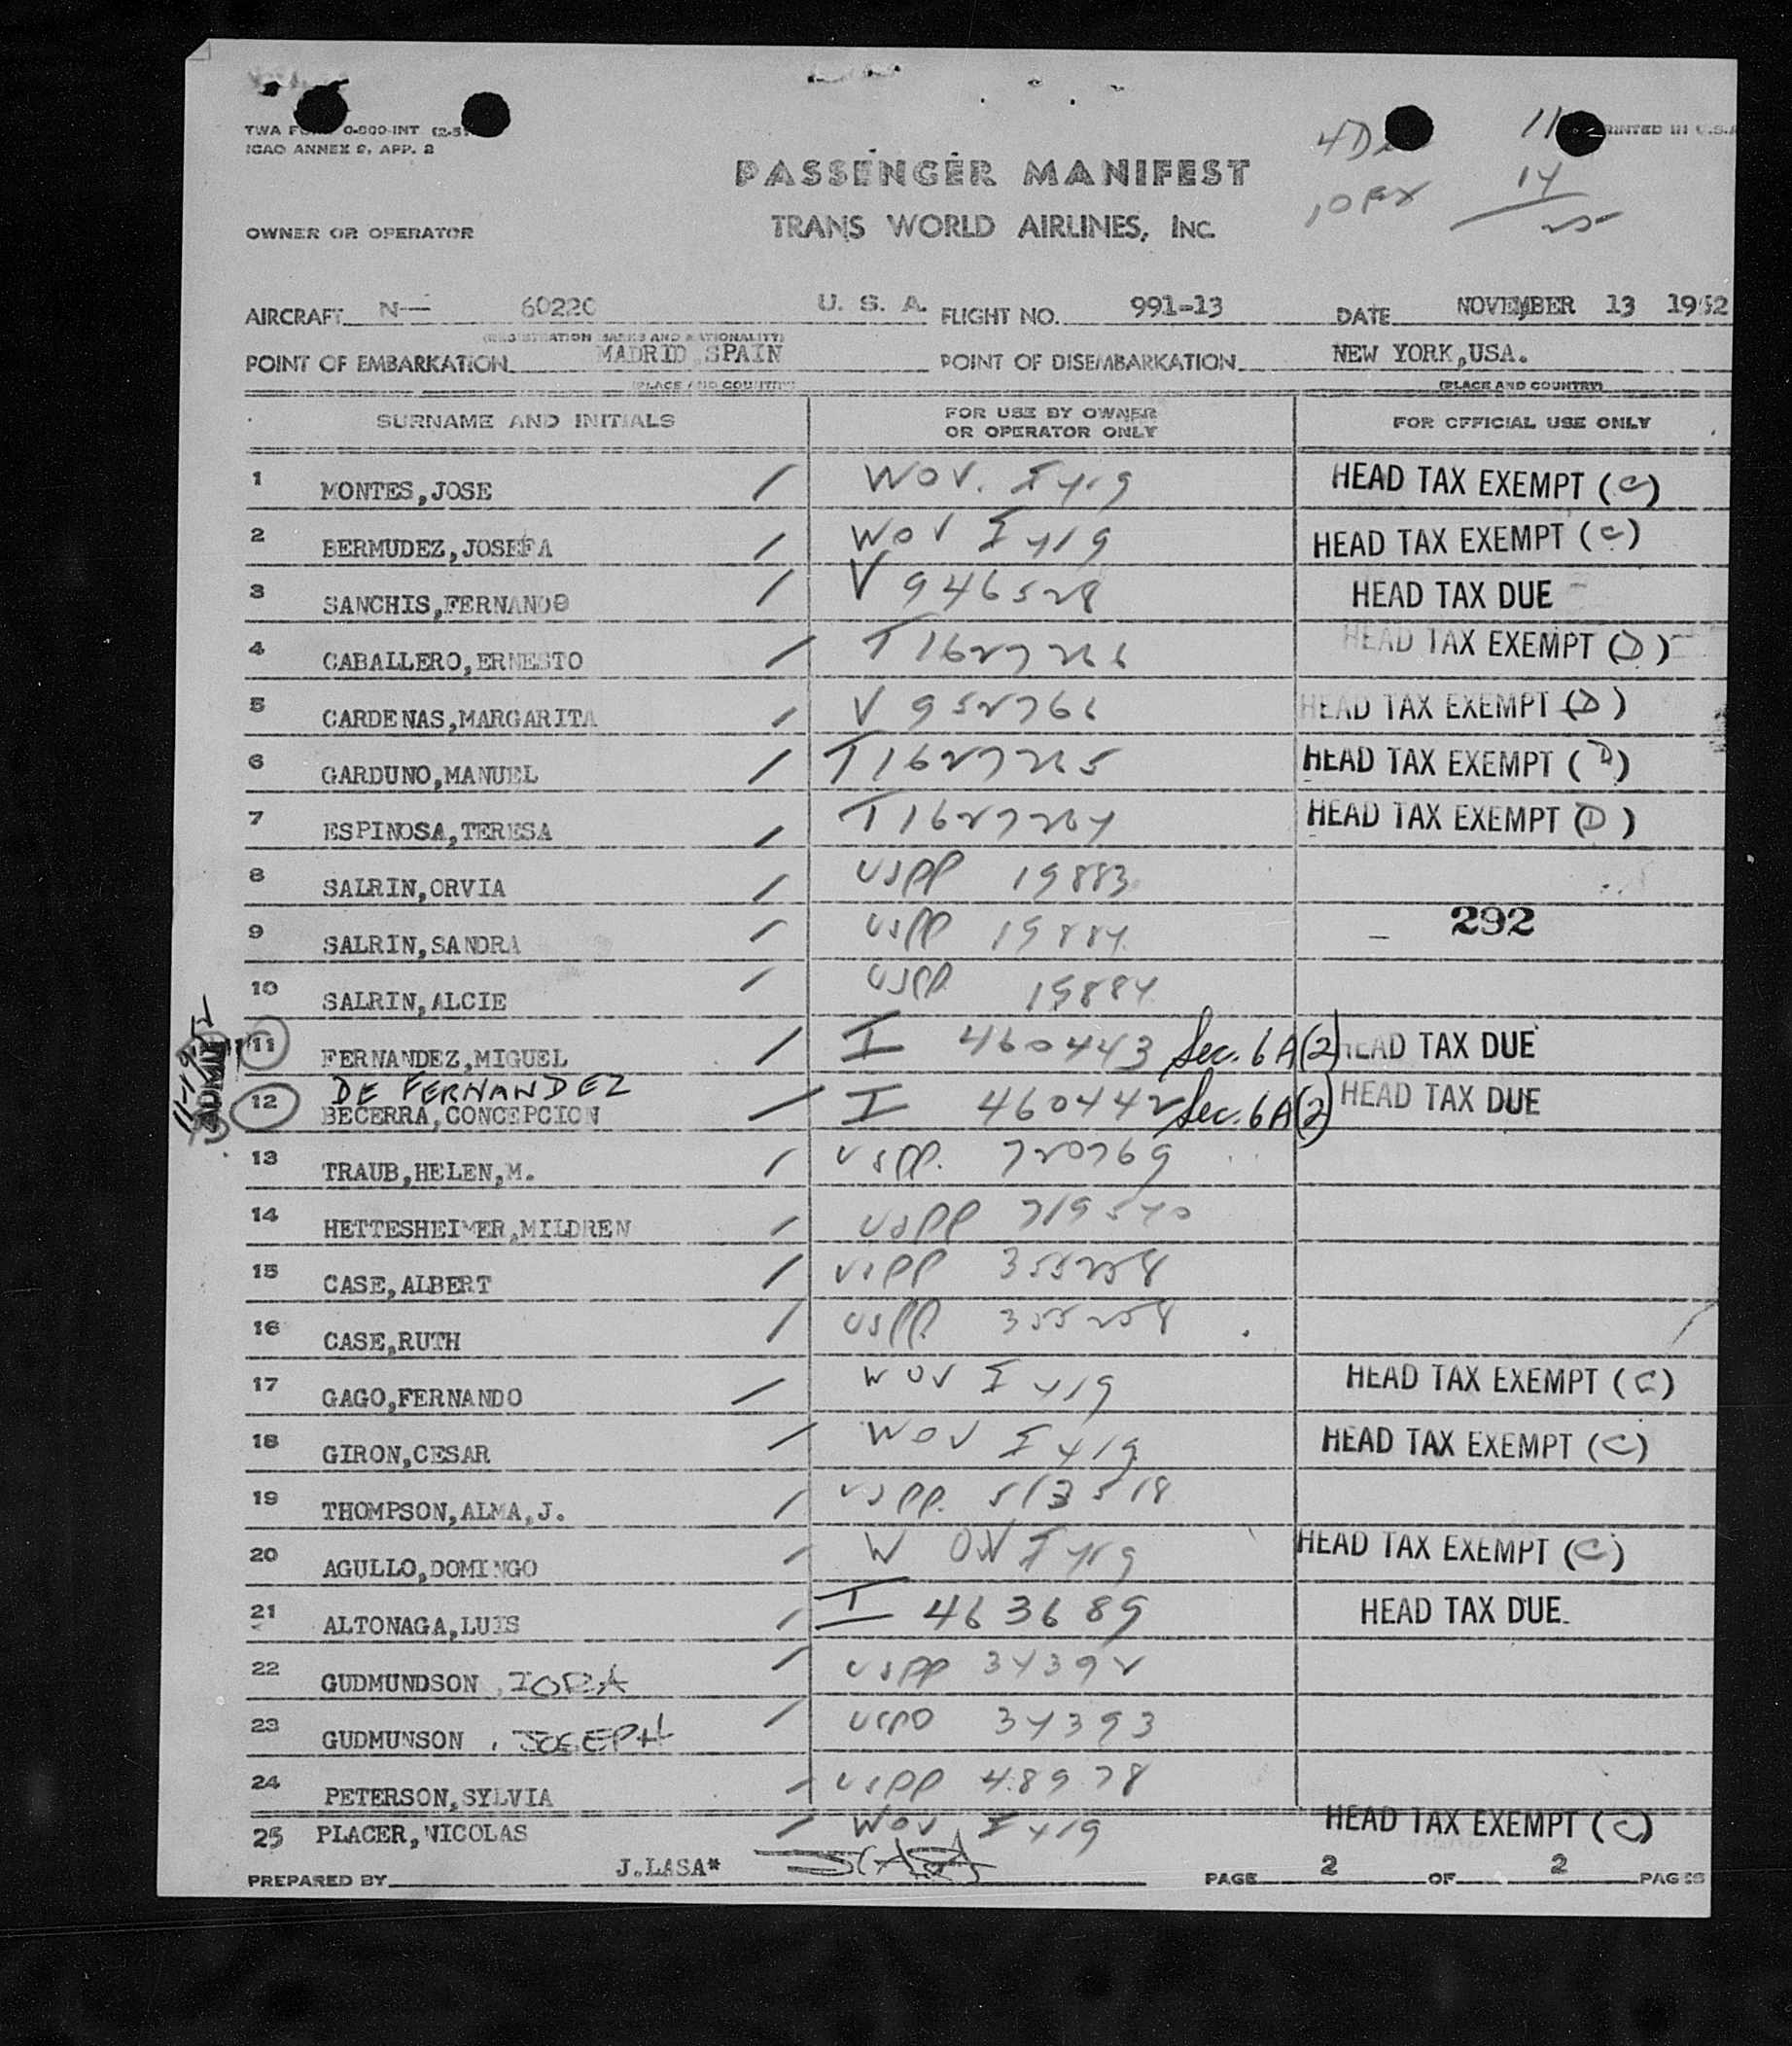 TWA FORM 0-800-INT (2-51
ICAO ANNEX 9, APP. 2
PRINTED IN U.S.A
11
14
25
PASSENGER MANIFEST
OWNER OR OPERATOR TRANS WORLD AIRLINES, INC.
AIRCRAFT N— 60220 U. S. A. FLIGHT NO. 991-13 DATE NOVEMBER 13 1952
(REGISTRATION MARKS AND NATIONALITY)
POINT OF EMBARKATION MADRID, SPAIN POINT OF DISEMBARKATION NEW YORK,USA.
(PLACE AND COUNTRY) (PLACE AND COUNTRY)
SURNAME AND INITIALS FOR USE BY OWNER OR OPERATOR ONLY FOR OFFICIAL USE ONLY
1 MONTES,JOSE / WOV. I 419 HEAD TAX EXEMPT (C)
2 BERMUDEZ,JOSEFA / WOV I 419 HEAD TAX EXEMPT (C)
3 SANCHIS,FERNANDO / V 946528 HEAD TAX DUE
4 CABALLERO,ERNESTO / T 1627266 HEAD TAX EXEMPT (D)
5 CARDENAS,MARGARITA / V 952766 HEAD TAX EXEMPT (D)
6 GARDUNO,MANUEL / T 1627265 HEAD TAX EXEMPT (D)
7 ESPINOSA,TERESA / T 1627264 HEAD TAX EXEMPT (D)
8 SALRIN,ORVIA / USPP 19883
9 SALRIN,SANDRA / USPP 19884 292
10 SALRIN,ALCIE / USPP 19884
11 FERNANDEZ,MIGUEL / I 460443 Sec. 6A(2) HEAD TAX DUE
DE FERNANDEZ
12 BECERRA,CONCEPCION / I 460442 Sec. 6A(2) HEAD TAX DUE
13 TRAUB,HELEN,M. / USPP. 720769
14 HETTESHEIMER,MILDREN / USPP 719540
15 CASE,ALBERT / USPP 355258
16 CASE,RUTH / USPP. 355258
17 GAGO,FERNANDO / WOV I 419 HEAD TAX EXEMPT (C)
18 GIRON,CESAR / WOV I 419 HEAD TAX EXEMPT (C)
19 THOMPSON,ALMA,J. / USPP. 513518
20 AGULLO,DOMINGO / WOV I 419 HEAD TAX EXEMPT (C)
21 ALTONAGA,LUIS / I 463689 HEAD TAX DUE
22 GUDMUNDSON, IORA / USPP 34392
23 GUDMUNSON, JOSEPH / USPP 34393
24 PETERSON,SYLVIA / USPP 48978
25 PLACER,NICOLAS / WOV I 419 HEAD TAX EXEMPT (C)
PREPARED BY J.LASA* PAGE 2 OF 2 PAGES